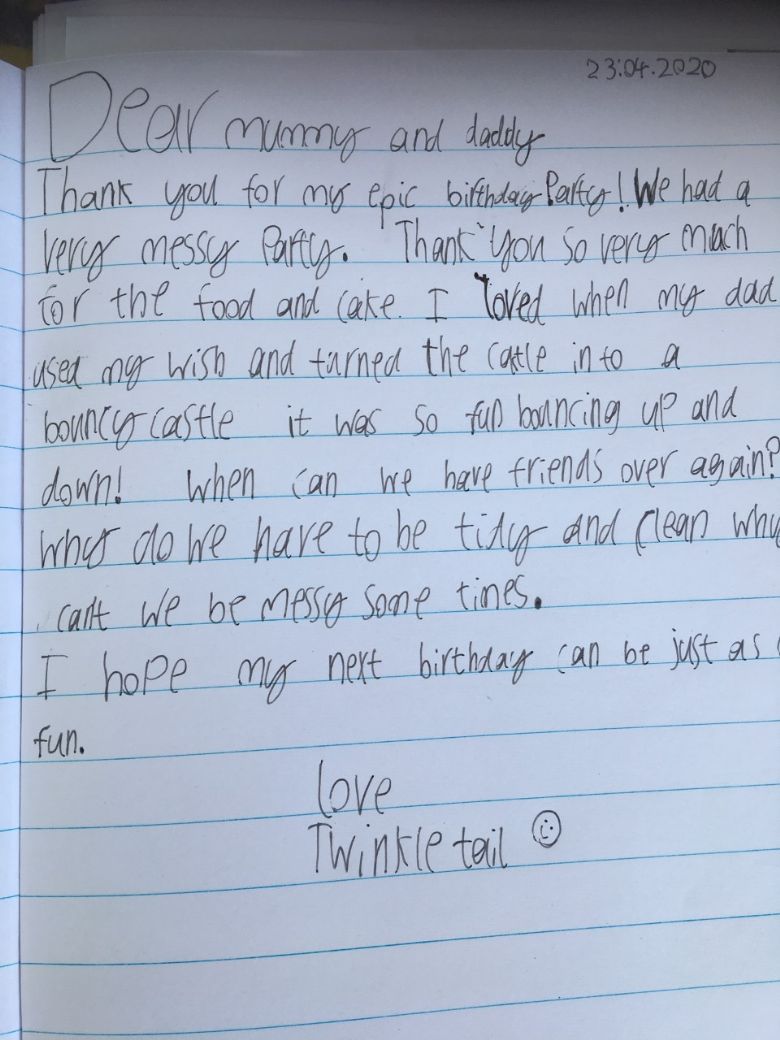 23.04.2020
Dear mummy and daddy
Thank you for my epic birthday Party! We had a
very messy Party. Thank you so very much
for the food and cake. I loved when my dad
used my wish and turned the castle into a
bouncy castle it was so fun bouncing up and
down! When can we have friends over again?
Why do we have to be tidy and clean why
can't we be messy some times.
I hope my next birthday can be just as
fun.
love
Twinkle tail